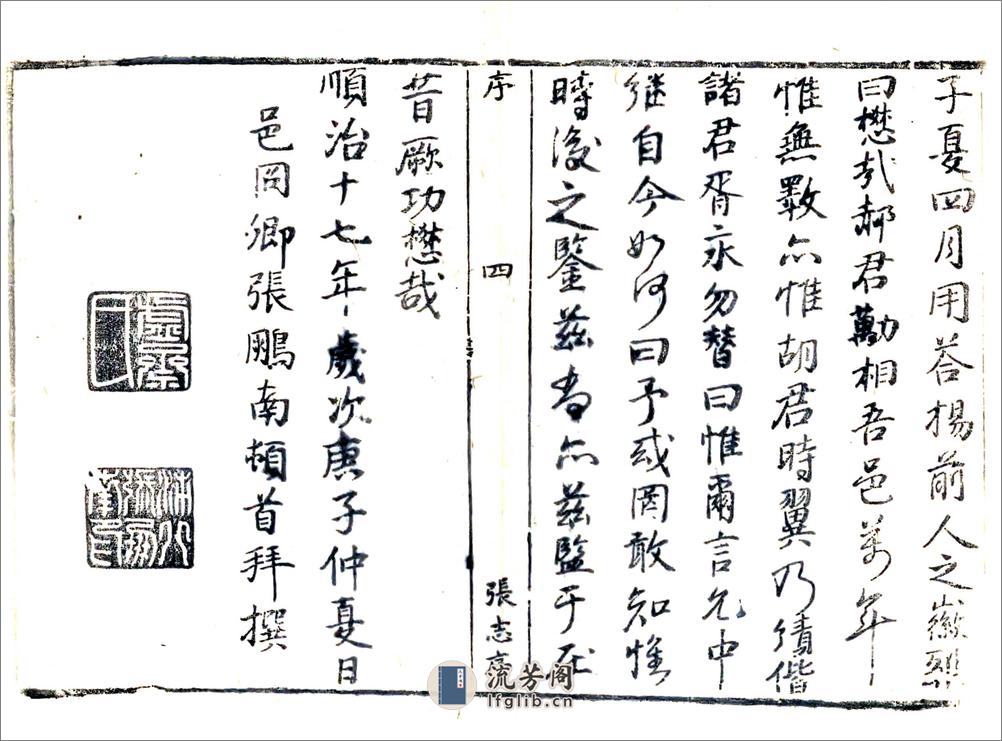 子夏四月用荅揚前人之徽烈
曰懋哉郝君勤相吾邑萬年
惟無斁亦惟胡君時翼乃績偕
諸君胥永勿替曰惟爾言允中
継自今如何曰予或罔敢知惟
時後之鑒茲尚亦茲監于在
序 四 張志序
昔厥功懋哉
順治十七年歲次庚子仲夏日
邑囧卿張鵬南頓首拜撰
流芳阁
lfglib.cn